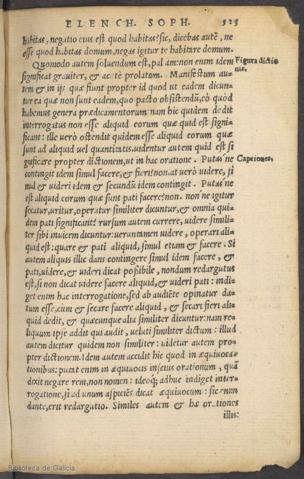 ELENCH. SOPH. 525
habitas, negatio eius est quod habitas? sic, dicebas autẽ, ne
esse quod habitas domum, negas igitur te habitare domum.
Quomodo autem soluendum est, palàm: non enim idem
significat grauiter, & acutè prolatum. Manifestum au-
tem & in ijs quæ fiunt propter id quod ut eadem dicun-
tur ea quæ non sunt eadem, quo pacto obsistendũ, eò quòd
habemus genera prædicamentorum: nam hic quidem dedit
interrogatus non esse aliquid eorum quæ quid est signi-
ficant: ille uerò ostendit quidem esse aliquid eorum quæ
sunt ad aliquid uel quantitatis, uidentur autem quid est si
gnificare propter dictionem, ut in hac oratione. Putas'ne
contingit idem simul facere, & fecisse? non. at uerò uidere, si
mul & uideri idem & secundũ idem contingit. Putas'ne
est aliquid eorum quæ sunt pati facere? non. non'ne igitur
secatur, uritur, operatur similiter dicuntur, & omnia qui-
dem pati significant? rursum autem currere, uidere simili-
ter sibi inuicem dicuntur: ueruntamen uidere, operari ali-
quid est: quare & pati aliquid, simul etiam & facere. Si
autem aliquis illic dans contingere simul idem facere, &
pati, uidere, & uideri dicat possibile, nondum redargutus
est, si non dicat uidere facere aliquid, & uideri pati: indi-
get enim hac interrogatione, sed ab audiẽte opinatur da-
tum esse, cùm & secare facere aliquid, & secari fieri ali-
quid dedit, & quæcunque alia similiter dicuntur: nam re-
liquum ipse addit qui audit, ueluti similiter dictum: illud
autem dicitur quidem non similiter: uidetur autem pro-
pter dictionem. Idem autem accidit hic quod in æquiuoca-
tionibus: putat enim in æquiuocis inscius orationum, quã
dixit negare rem, non nomen: ideoq́; adhuc indiget inter-
rogatione, si ad unum aspiciẽs dicat æquiuocum: sic enim
dante, erit redargutio. Similes autem & hæ orationes
illis:
Figura dictio
nis.
Captiones.
Biblioteca de Galicia